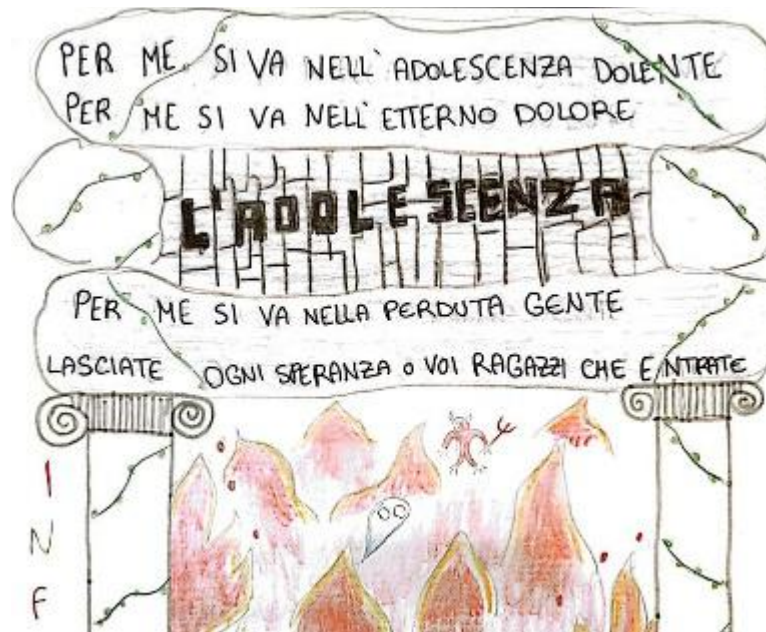 PER ME SI VA NELL'ADOLESCENZA DOLENTE
PER ME SI VA NELL'ETTERNO DOLORE
L'ADOLESCENZA
PER ME SI VA NELLA PERDUTA GENTE
LASCIATE OGNI SPERANZA O VOI RAGAZZI CHE ENTRATE
I
N
F